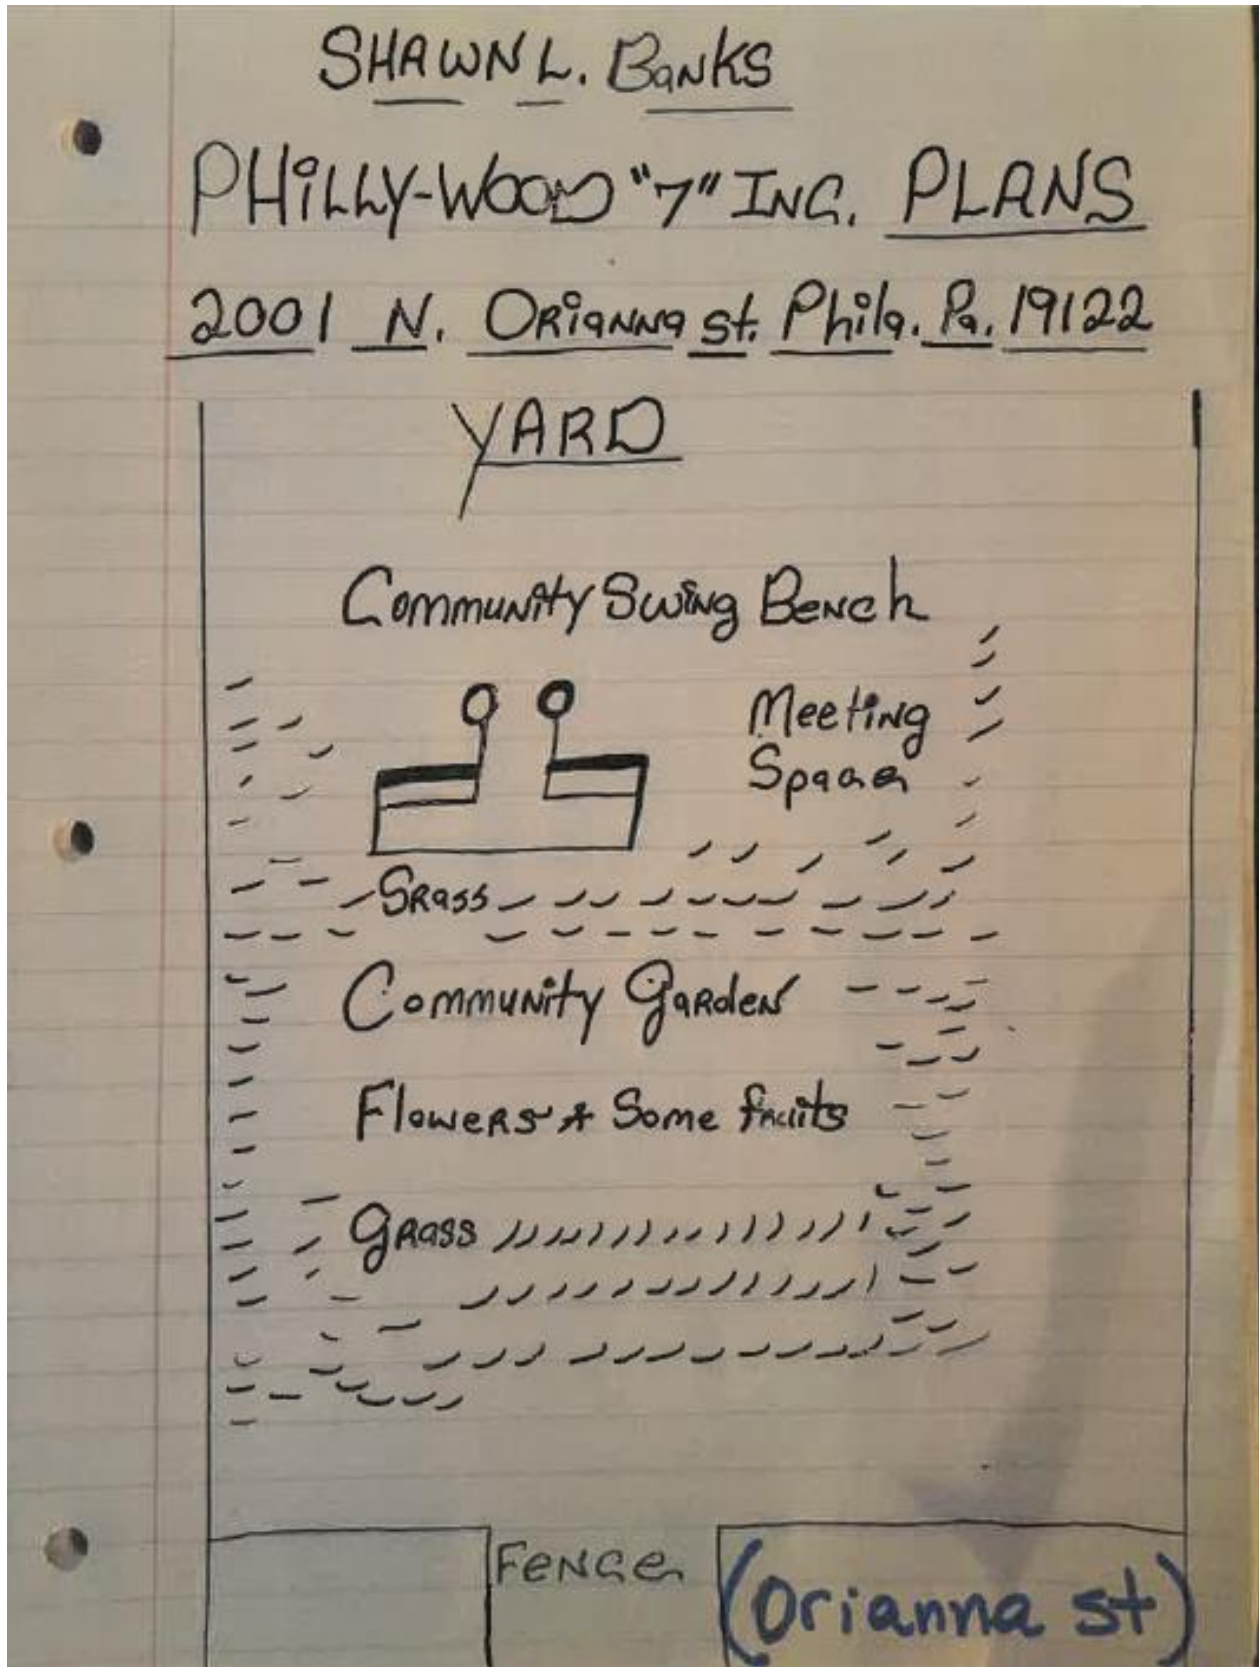 SHAWN L. BANKS
PHiLLY-WOOD "7" INC. PLANS
2001 N. ORiANNA st. Phila. Pa. 19122
YARD
Community Swing Bench
Meeting
Space
GRass
Community Garden
Flowers + Some fruits
GRass
Fence
(Orianna st)